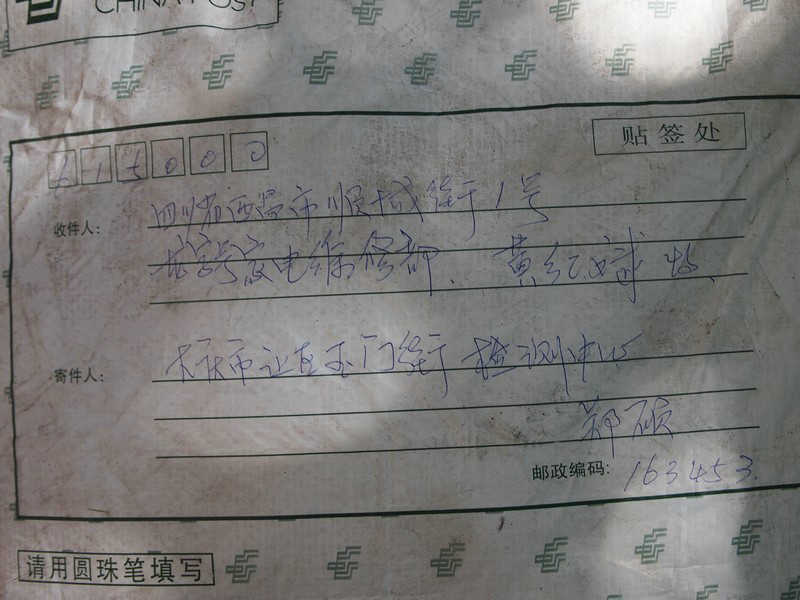 CHINA POST
贴签处
615000
收件人: 四川省西昌市顺城街1号
家电维修部、黄红斌 收
寄件人: 大庆市让区玉门街检测中心
郑硕
邮政编码: 163453
请用圆珠笔填写